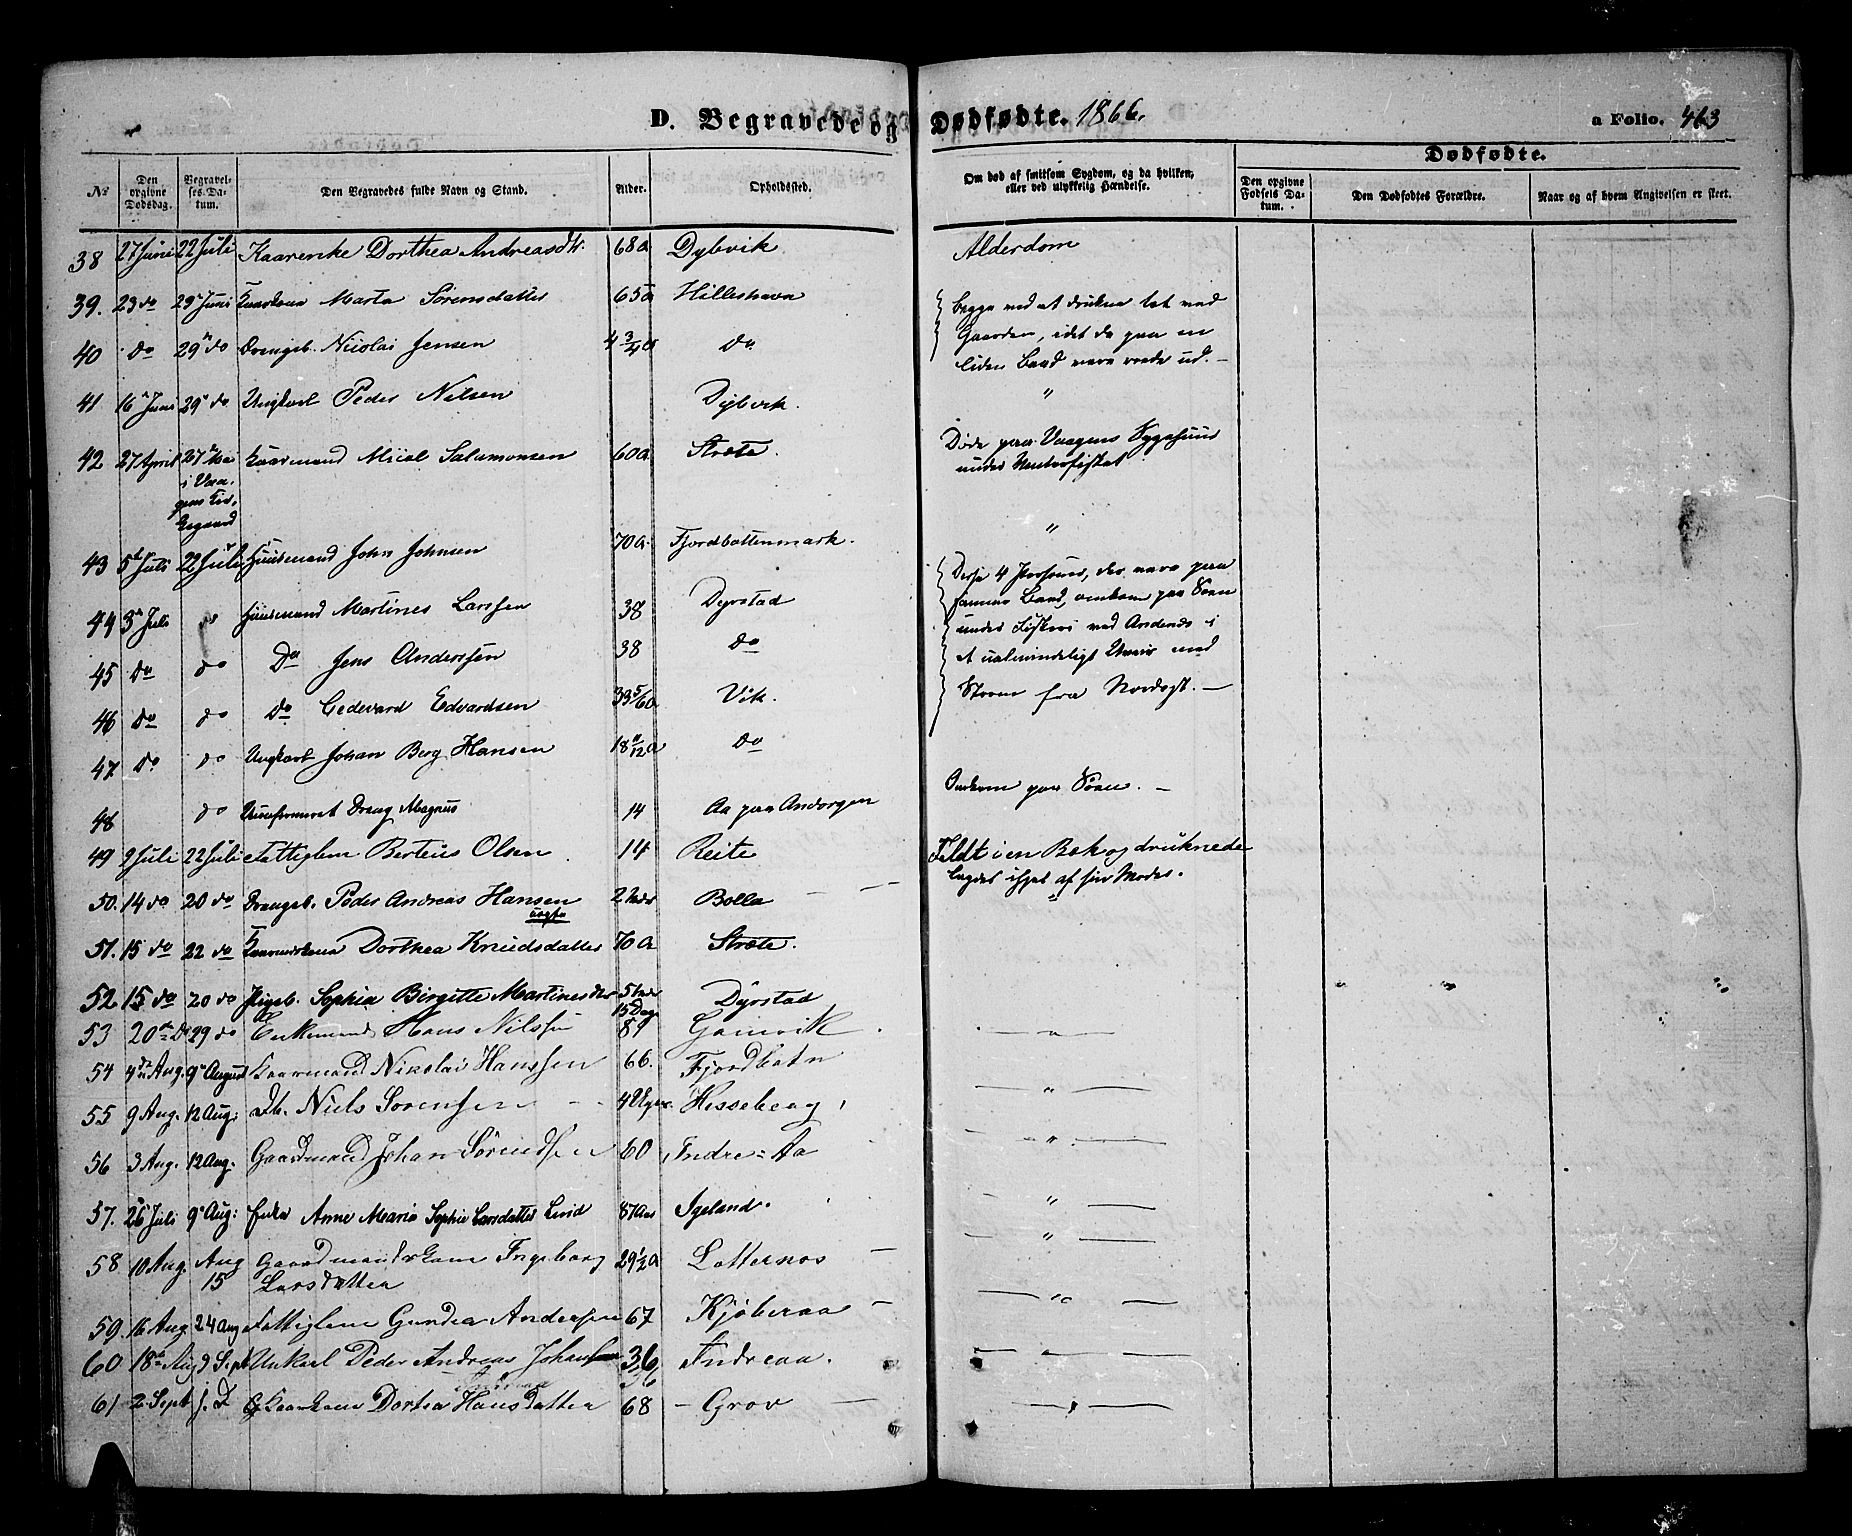 D. Begravede og Dødfødte. 1866. a Folio. 463
Dødfødte.
No Den opgivne Dødsdag. Begravelses Datum. Den Begravedes fulde Navn og Stand. Alder. Opholdssted. Om død af smitsom Sygdom, og da hvilken, eller ved ulykkelig Hændelse. Den opgivne Fødsels Datum. Den Dødfødtes Forældre. Naar og af hvem Angivelsen er skeet.
38 27 Juni 22 Juli Kaarenke Dorthea Andreasdtr. 68 a Dybvik Alderdom
39. 23 do 29 Juni Marta Sørensdatter 65 a Hilleshavn begge ved at drukne tæt ved
40 do 29 do Drengeb. Nicolai Jensen 4 3/4 a do Gaarden, idet de paa en
liden Baad vare roede ud. —
41 16 Juni 29 do Ungkarl Peder Nilsen Dybvik. "
42 27 April 27 Mai Gaardmand Salamonsen 60 a. Stræte. Døde paa Vaagens Sygehuus
i Vaagens Kirkegaard under Vinterfisket
43 5 Juli 22 Juli Huusmand John Johnsen 70 a. Fjordbottenmark. "
44 3 Juli " Huusmand Martines Larssen 38 Dyrstad Disse 4 Personer, der vare paa
samme Baad, omkom paa Søen
45 do do Do Jens Anderssen 38 do under Fiskeri ved Andenes i
et ualmindeligt Uveir med
46 do do do Gedevard Edvardsen 33 5/6 a Vik. Storm fra Nordost. —
47 do do Ungkarl Johan Berg Hansen 18 11/12 a do
48 do Uconfirmeret Dreng Magnus 14 Aa paa Andorgen Omkom paa Søen. —
49 9 Juli 22 Juli Fattiglem Berteus Olsen 14 Reite Feldt i en Bæk og druknede
50. 14 do 20 do Drengeb. Peder Andreas Hansen 2 Bolla — — af sin Moder.
51. 15 do 22 do Dorthea Knudsdatter 70 a Stræte.
52 15 do 20 do Pigeb. Sophia Birgitte Martinesdtr 5 15 Dage Dyrstad " " "
53 20 do 29 do Enkemand Hans Nilssen 89 Gamvik — " —
54 4 Aug. 9 August Gaardmand Nikolai Hanssen 66. Fjordbotn
55 9 Aug. 12 Aug. Db. Niels Sørensen 4 Uger Hesseberg — " —
56 3 Aug. 12 Aug. Gaardmand Johan Sørensen 60 Indre=Aa — " —
57. 26 Juli 9 Aug: Enke Anne Maria Sophie Larsdatter Lind 87 Aar Igeland. — " —
58 10 Aug. Aug 15 Gaardmandskone Ingeborg 29 1/2 a Latternes — — " —
Larsdatter
59. 16 Aug. 24 Aug Fattiglem Gundea Andersen 67 Kjøberaa — — " —
60 18 Aug Sept Unkarl Peder Andreas Johansen 36 Indreaa. — — —
36
61 2 Sept s. D Dortea Hansdatter 68 — Grov —